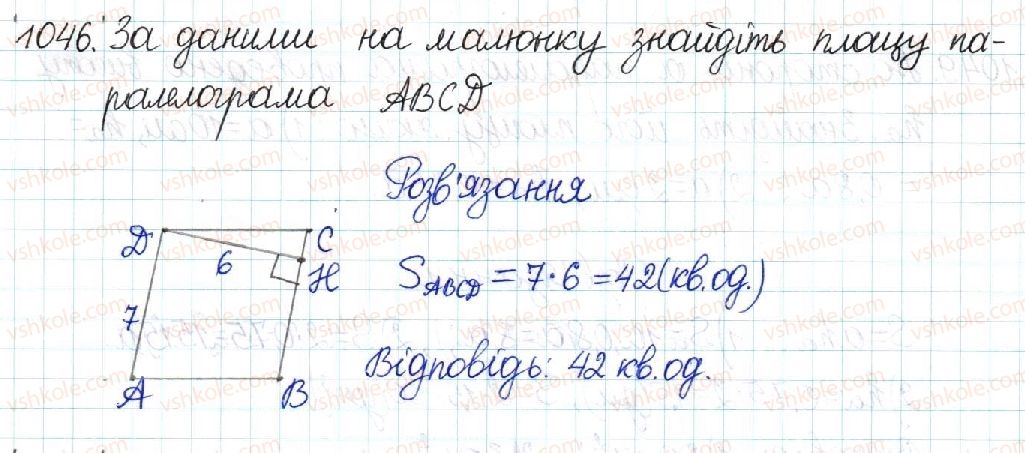 1046. За даними на малюнку знайдіть площу па-
ралелограма ABCD
Розв'язання
D C
6 H
7
A B
S_ABCD = 7·6 = 42 (кв.од.)
Відповідь: 42 кв.од.
vshkole.com